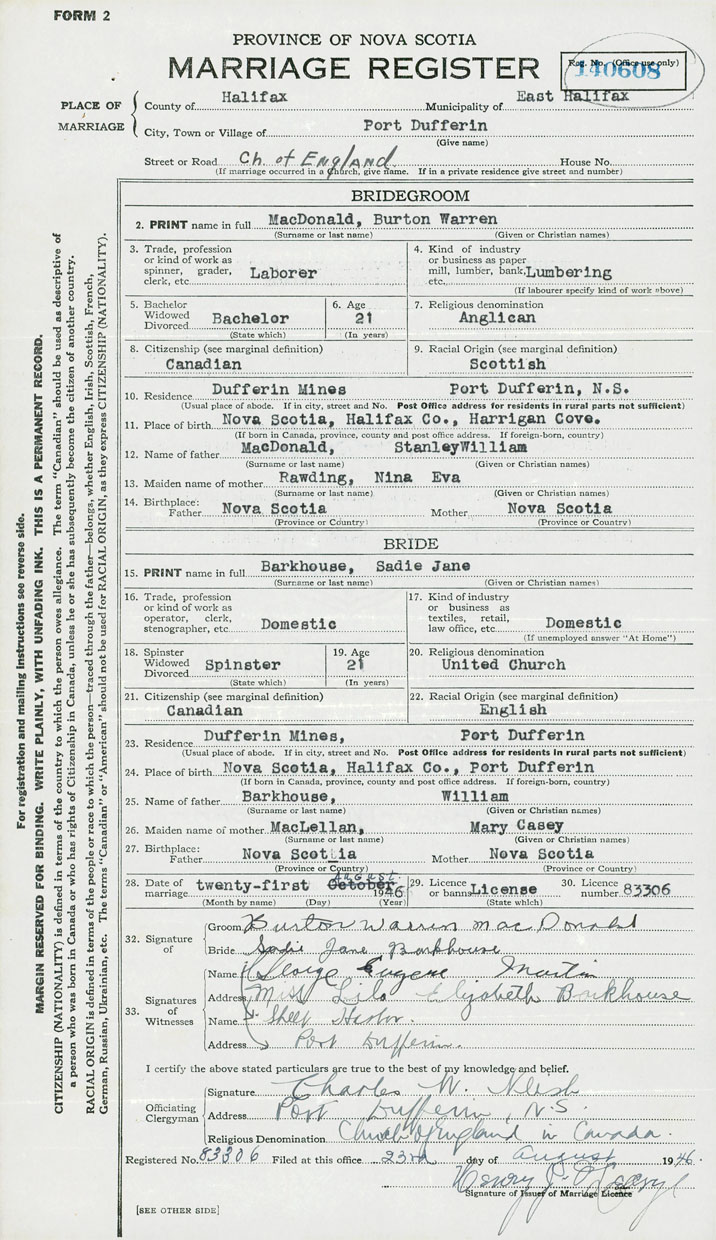 FORM 2
PROVINCE OF NOVA SCOTIA
MARRIAGE REGISTER
Reg. No. (Office use only)
140608
PLACE OF MARRIAGE
County of Halifax Municipality of East Halifax
City, Town or Village of Port Dufferin
(Give name)
Street or Road Ch. of England House No.
(If marriage occurred in a Church, give name. If in a private residence give street and number)
BRIDEGROOM
2. PRINT name in full MacDonald, Burton Warren
(Surname or last name) (Given or Christian names)
3. Trade, profession or kind of work as spinner, grader, clerk, etc. Laborer
4. Kind of industry or business as paper mill, lumber, bank, etc. Lumbering
(If labourer specify kind of work above)
5. Bachelor Widowed Divorced Bachelor
(State which)
6. Age 21
(In years)
7. Religious denomination
Anglican
8. Citizenship (see marginal definition)
Canadian
9. Racial Origin (see marginal definition)
Scottish
10. Residence Dufferin Mines Port Dufferin, N.S.
(Usual place of abode. If in city, street and No. Post Office address for residents in rural parts not sufficient)
11. Place of birth Nova Scotia, Halifax Co., Harrigan Cove.
(If born in Canada, province, county and post office address. If foreign-born, country)
12. Name of father MacDonald, StanleyWilliam
(Surname or last name) (Given or Christian names)
13. Maiden name of mother Rawding, Nina Eva
(Surname or last name) (Given or Christian names)
14. Birthplace: Father Nova Scotia Mother Nova Scotia
(Province or Country) (Province or Country)
BRIDE
15. PRINT name in full Barkhouse, Sadie Jane
(Surname or last name) (Given or Christian names)
16. Trade, profession or kind of work as operator, clerk, stenographer, etc. Domestic
17. Kind of industry or business as textiles, retail, law office, etc. Domestic
(If unemployed answer "At Home")
18. Spinster Widowed Divorced Spinster
(State which)
19. Age 21
(In years)
20. Religious denomination
United Church
21. Citizenship (see marginal definition)
Canadian
22. Racial Origin (see marginal definition)
English
23. Residence Dufferin Mines, Port Dufferin
(Usual place of abode. If in city, street and No. Post Office address for residents in rural parts not sufficient)
24. Place of birth Nova Scotia, Halifax Co., Port Dufferin
(If born in Canada, province, county and post office address. If foreign-born, country)
25. Name of father Barkhouse, William
(Surname or last name) (Given or Christian names)
26. Maiden name of mother MacLellan, Mary Casey
(Surname or last name) (Given or Christian names)
27. Birthplace: Father Nova Scotia Mother Nova Scotia
(Province or Country) (Province or Country)
28. Date of marriage twenty-first October August 1946
(Month by name) (Day) (Year)
29. Licence or banns License
(State which)
30. Licence number 83306
32. Signature of
Groom Burton Warren MacDonald
Bride Sadie Jane Barkhouse
33. Signatures of Witnesses
Name George Eugene Martin
Address Miss Lila Elizabeth Barkhouse
Name Sheet Harbor.
Address Port Dufferin.
I certify the above stated particulars are true to the best of my knowledge and belief.
Officiating Clergyman
Signature Charles W.
Address Port Dufferin, N.S.
Religious Denomination Church of England in Canada.
Registered No. 83306 Filed at this office 23rd day of August 1946.
Henry
Signature of Issuer of Marriage Licence
[SEE OTHER SIDE]
For registration and mailing instructions see reverse side.
MARGIN RESERVED FOR BINDING. WRITE PLAINLY, WITH UNFADING INK. THIS IS A PERMANENT RECORD.
CITIZENSHIP (NATIONALITY) is defined in terms of the country to which the person owes allegiance. The term "Canadian" should be used as descriptive of
a person who was born in Canada or who has rights of Citizenship in Canada, unless he or she has subsequently become the citizen of another country.
RACIAL ORIGIN is defined in terms of the people or race to which the person—traced through the father—belongs, whether English, Irish, Scottish, French,
German, Russian, Ukrainian, etc. The terms "Canadian" or "American" should not be used for RACIAL ORIGIN, as they express CITIZENSHIP (NATIONALITY).